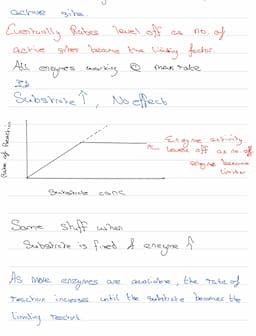 active site.
Eventually Rates level off as no. of
active sites become the limiting factor.
All enzymes working @ max rate
If
Substrate ↑, No effect
Rate of Reaction
Enzyme activity
levels off as no. of
enzyme become
limiter
Substrate conc
Same stuff when
Substrate is fixed & enzyme ↑
As more enzymes are available, the rate of
reaction increases until the substrate becomes the
limiting